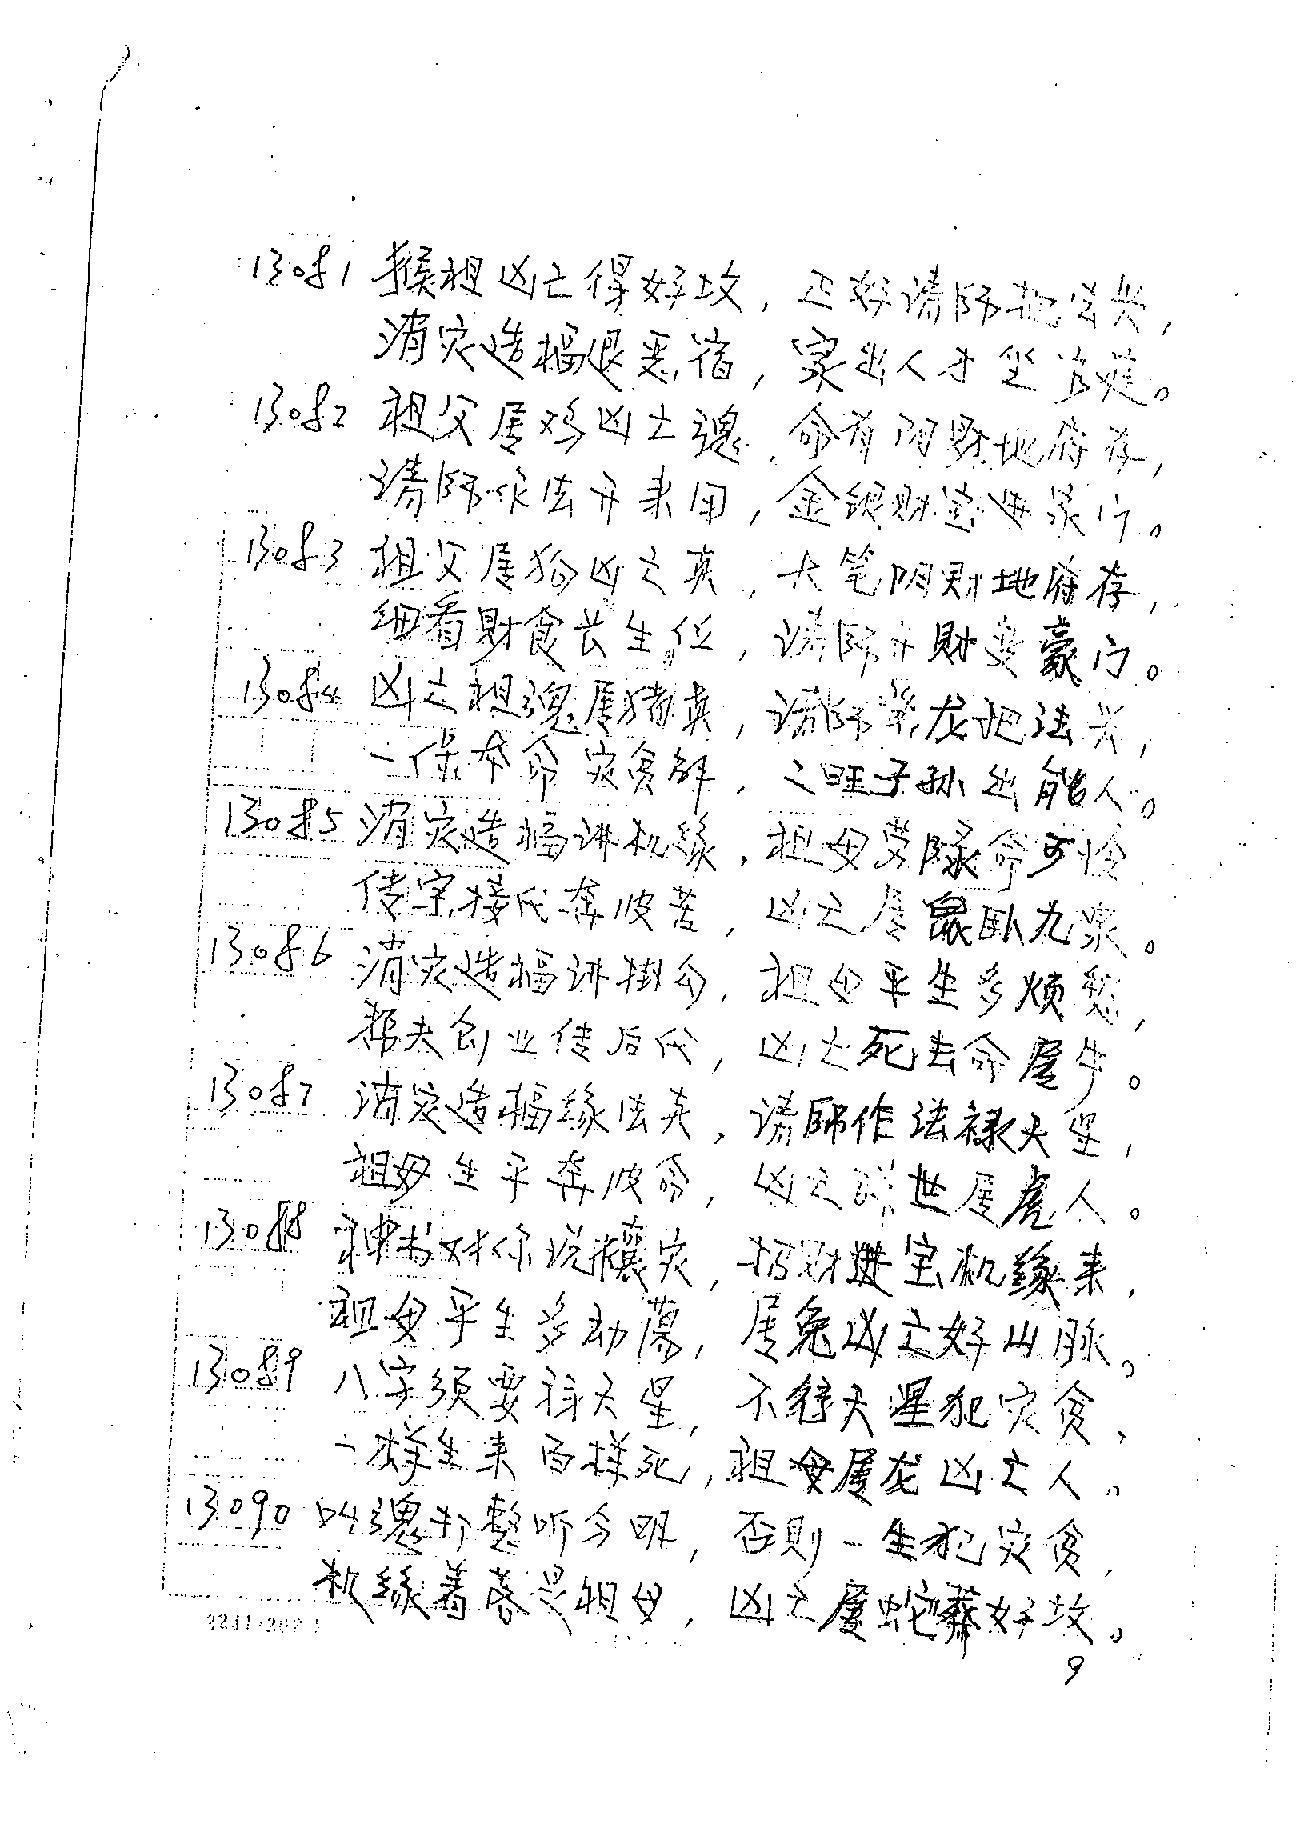 13081 猴祖凶亡得好坟，正好请师把法兴，
消灾造福退恶宿，家出人才坐官庭。
13082 祖父属鸡凶亡魂，命有阴财地府存，
请师作法开来用，金银财宝进家门。
13083 祖父属狗凶亡真，大笔阴财地府存，
细看财食长生位，请师开财变豪门。
13084 凶亡祖魂属猪真，请师来龙把法兴，
一保本命灾贪解，二旺子孙出能人。
13085 消灾造福讲机缘，祖母劳碌命可怜
传宗接代奔波苦，凶亡属鼠卧九泉。
13086 消灾造福讲掛勾，祖母平生多烦愁，
帮夫创业传后代，凶亡死去命属牛。
13087 消灾造福缘法真，请师作法禄大星，
祖母生平奔波命，凶亡世属虎人。
13088 神书对你说穰灾，招财进宝机缘来，
祖母平生多动荡，属兔凶亡好山脉。
13089 八字须要禄大星，不禄大星犯灾贪，
一样生来百样死，祖母属龙凶亡人。
13090 叫魂打整听分明，否则一生犯灾贪，
机缘着落是祖母，凶亡属蛇葬好坟。
9